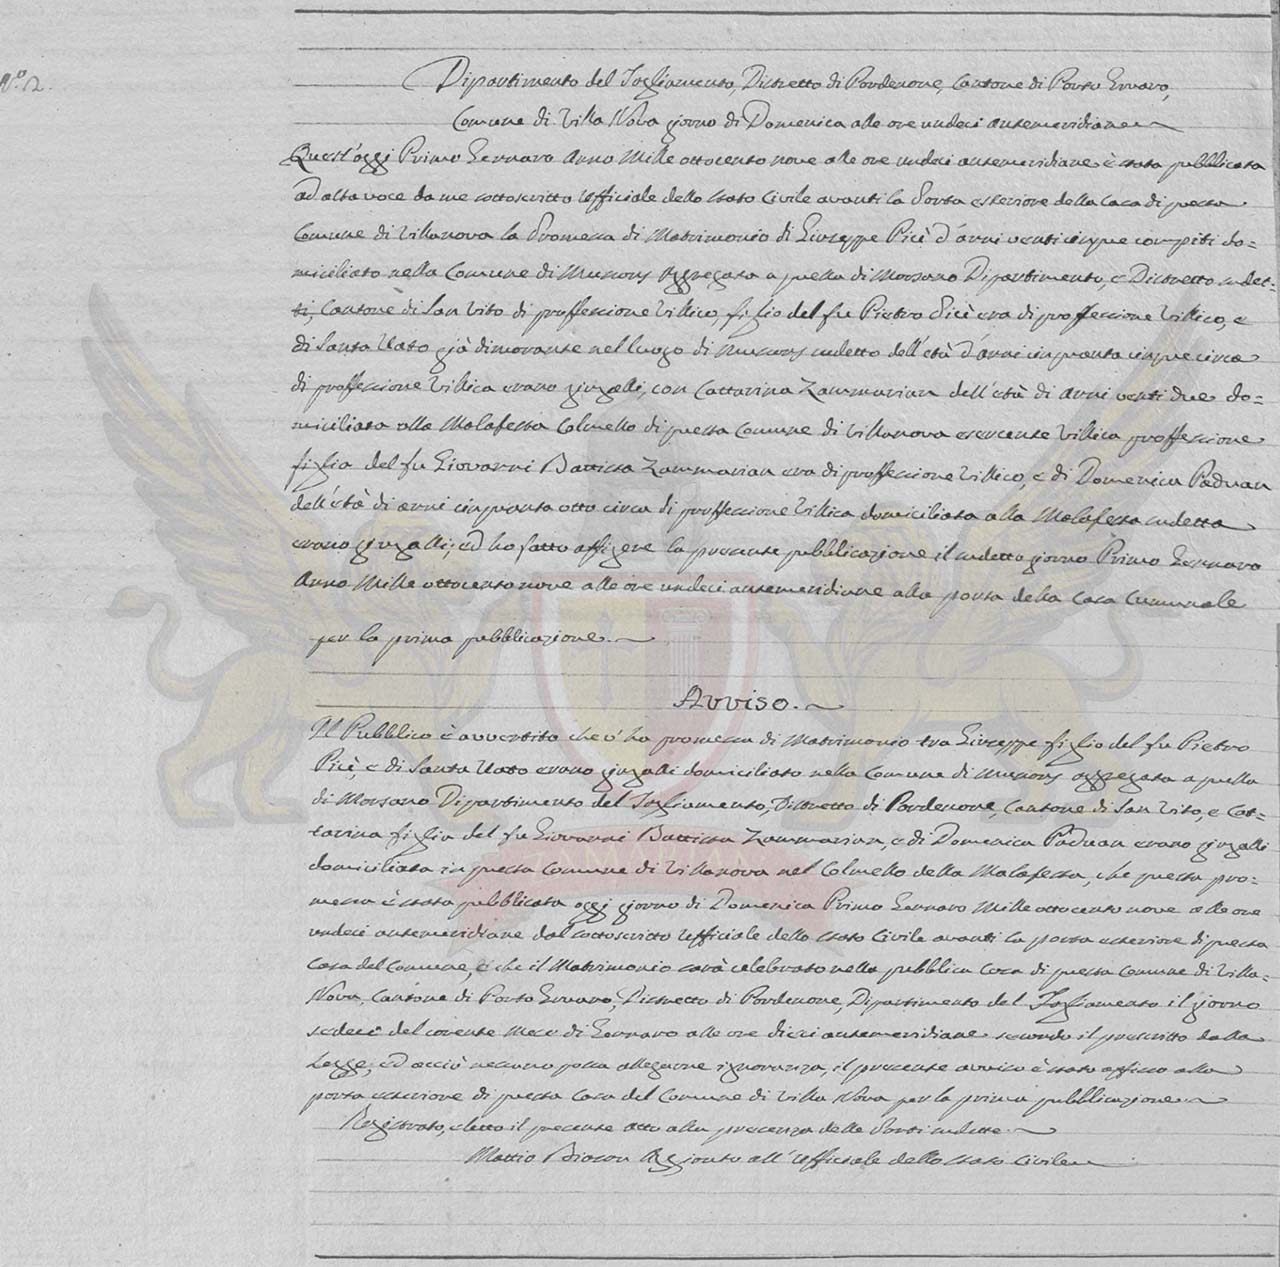 N.º 2.
Dipartimento del Tagliamento, Distretto di Pordenone, Cantone di Porto Gruaro,
Comune di Villa Nova giorno di Domenica alle ore undeci antemeridiane
Quest'oggi Primo Gennaro Anno Mille ottocento nove alle ore undeci antemeridiane è stata pubblicata
ad alta voce da me sottoscritto Ufficiale dello stato Civile avanti la Porta esteriore della Casa di questa
Comune di Villanova la Promessa di Matrimonio di Giuseppe Picè d'anni venticinque compiti do=
miciliato nella Comune di Mussons Aggregata a quella di Morsano Dipartimento, e Distretto sudet=
ti, Cantone di San Vito di proffessione Villico, figlio del fu Pietro Picè era di proffessione Villico, e
di Santa già dimorante nel luogo di Mussons sudetto dell'età d'anni cinquanta cinque circa
di proffessione Villica erano giugalli, con Cattarina Zammarian dell'età di anni venti due do=
miciliata alla Malafesta Colmello di questa Comune di Villanova esercente Villica proffessione
figlia del fu Giovanni Battista Zammarian era di proffessione Villico, e di Domenica Paduan
dell'età di anni cinquanta otto circa di proffessione Villica domiciliata alla Malafesta sudetta
erano giugalli; ed ho fatto affigere la presente pubblicazione il sudetto giorno Primo Gennaro
Anno Mille ottocento nove alle ore undeci antemeridiane alla porta della Casa Comunale
per la prima pubblicazione.
Avviso.
Il Pubblico è avvertito che v'ha promessa di Matrimonio tra Giuseppe figlio del fu Pietro
Picè, e di Santa erano giugalli domiciliato nella Comune di Mussons aggregata a quella
di Morsano Dipartimento del Tagliamento, Distretto di Pordenone, Cantone di San Vito, e Cat=
tarina figlia del fu Giovanni Battista Zammarian, e di Domenica Paduan erano giugalli
domiciliata in questa Comune di Villanova nel Colmello della Malafesta, che questa pro=
messa è stata pubblicata oggi giorno di Domenica Primo Gennaro Mille ottocento nove alle ore
undeci antemeridiane dal sottoscritto Ufficiale dello stato Civile avanti la porta esteriore di questa
Casa del Comune, e che il Matrimonio sarà celebrato nella pubblica Casa di questa Comune di Villa=
Nova, Cantone di Porto Gruaro, Distretto di Pordenone, Dipartimento del Tagliamento il giorno
sedeci del corente Mese di Gennaro alle ore dieci antemeridiane secondo il prescritto dalla
Legge; ed acciò nessuno possa allegarne ignoranza, il presente avviso è stato affisso alla
porta esteriore di questa Casa del Comune di Villa Nova per la prima pubblicazione
Registrato, e letto il presente atto alla presenza delle Parti sudette.
Mattio Biason Aggionto all'Ufficiale dello stato Civile
ZAMARIAN